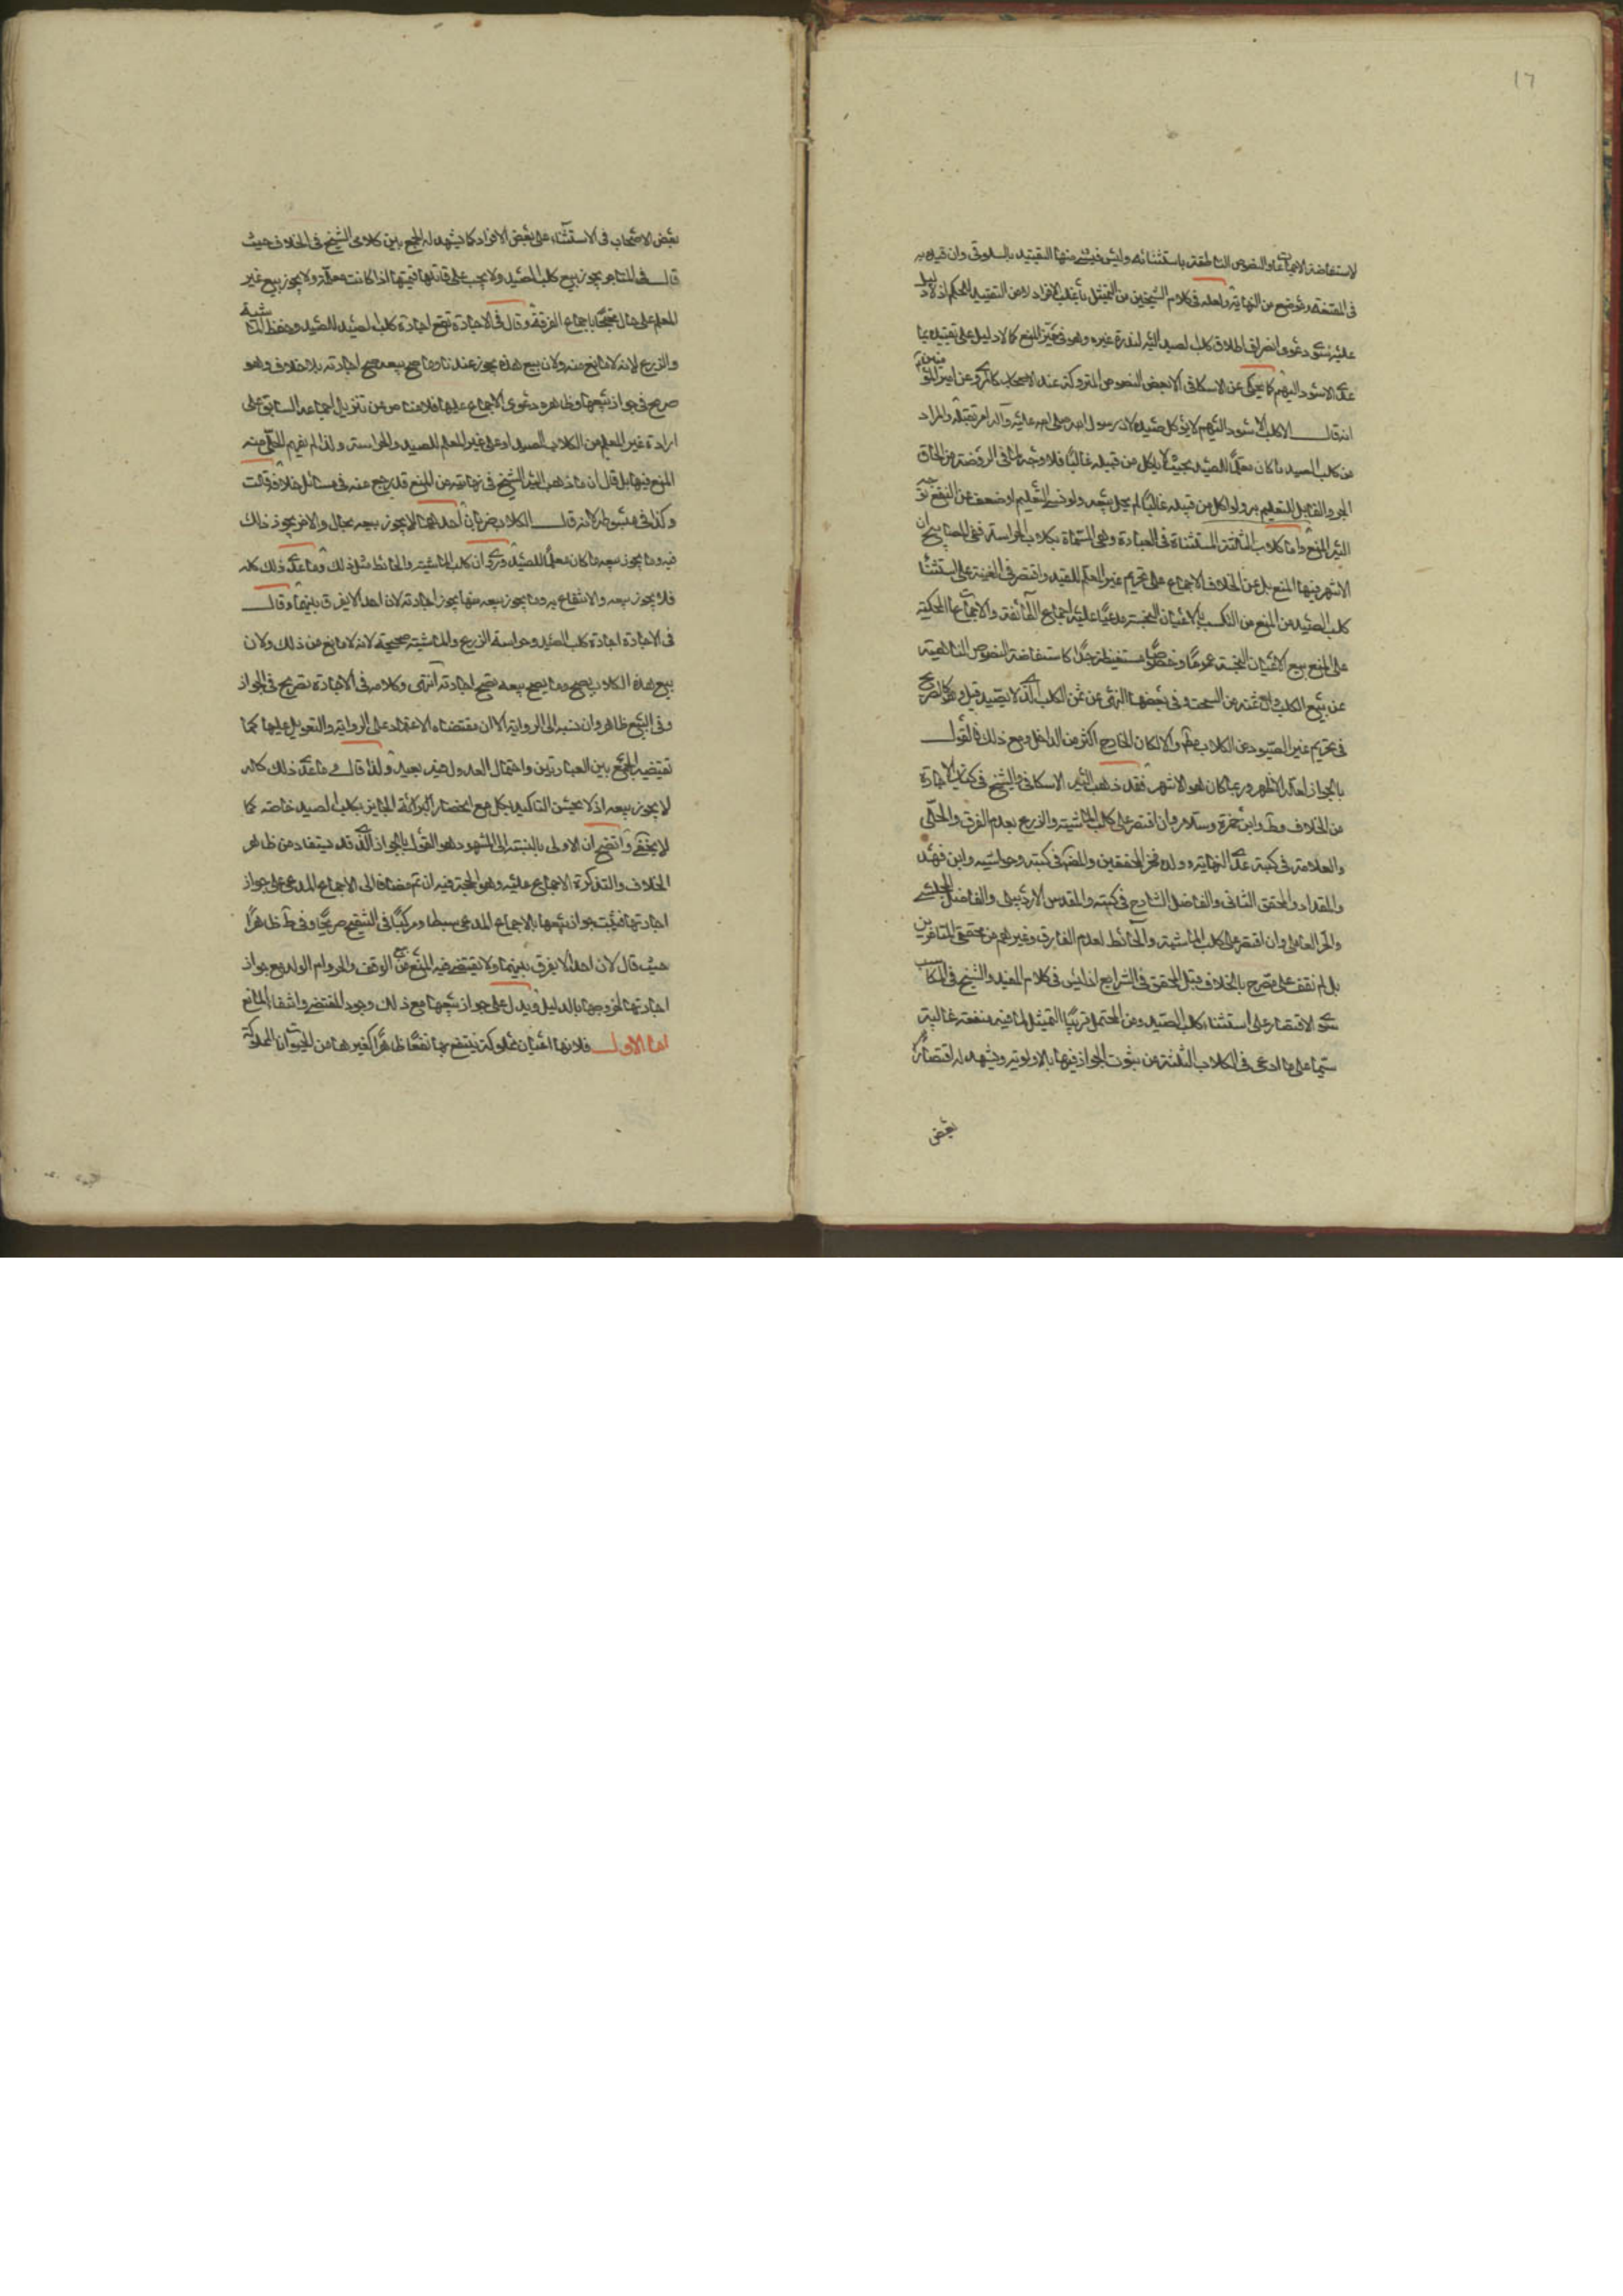 ١٦
لاستفاضة الاجماعات والنصوص الناطقة باستثنائه وليس في شئ منها التقييد بالسلوقي وان قيده به
في المقنعة وموضع من النهاية ولعله في كلام الشيخين من التمثيل باغلب الافراد لا من التقييد للحكم اذ لا دليل
عليه سوى دعوى انصراف اطلاق كلب الصيد اليه لندرة غيره وهو في حيز المنع كما لا دليل على تقييده بما
عدا الاسود البهيم كما يحكى عن الاسكافي الا بعض النصوص المتروكة عند الاصحاب كالمروي عن امير المؤمنين
انه قال الكلب الاسود البهيم لا يؤكل صيده لان رسول الله صلى الله عليه وآله امر بقتله والمراد
من كلب الصيد ما كان معلما للصيد بحيث لا ياكل من قبيله غالبا فلا وجه لما في الروضة من الحاق
الجرو القابل للتعليم به ولو اكل من قبيله غالبا لم يحل بيعه ولو نسي التعليم او ضعف عن النفع توجه
اليه المنع واما كلاب الثلثة المستثناة في العبادة وهي المسماة بكلاب الحراسة ففي المصابيح ان
الاشهر فيها المنع بل عن الخلاف الاجماع على تحريم غير المعلم للصيد واقتصر في الغنية على استثناء
كلب الصيد من المنع من التكسب بالاعيان النجسة مدعيا عليه اجماع الطائفة والاجماعات المحكية
على المنع ببيع الاعيان النجسة عموما وخصوصا مستفيضة جدا كاستفاضة النصوص الناهية
عن بيع الكلب وان ثمنه من السحت وفي بعضها النهي عن ثمن الكلب الذي لا يصيد قيل وهو كالصريح
في تحريم غير الصيود من الكلاب مطم والا لكان الخارج اكثر من الداخل ومع ذلك فالقول
بالجواز لعله الاظهر وربما كان هو الاشهر فقد ذهب اليه الاسكافي والشيخ في كتاب الاجارة
من الخلاف وط وابن حمزة وسلار وان اقتصر على كلب الماشية والزرع بعدم الفرق والحلي
والعلامة في كتبه عدا النهاية وولده فخر المحققين والشهيد في كتبه وحواشيه وابن فهد
والمقداد والمحقق الثاني والفاضل الشارح في كتبه والمقدس الاردبيلي والفاضل المجلسي
والحر العاملي وان اقتصر على كلب الماشية والحائط لعدم الفارق وغيرهم من محققي المتاخرين
بل لم نقف على مصرح بالخلاف قبل المحقق في الشرايع اذ ليس في كلام المفيد والشيخ في المكاسب
سوى الاقتصار على استثناء كلب الصيد ومن المحتمل قريبا التمثيل لما فيه منفعة غالبة
سيما على ما ادعى في الكلاب الثلثة من ثبوت الجواز فيها بالاولوية ويشهد له اقتصار
بعض
بعض الاصحاب في الاستثناء على بعض الافراد كما يشهد له الجمع بين كلامي الشيخ في الخلاف حيث
قال في المتاجر يجوز بيع كلب الصيد ولا يجب على قاتلها قيمتها اذا كانت معلمة ولا يجوز بيع غير
المعلم على حال محتجا باجماع الفرقة وقال في الاجارة تصح اجارة كلب الصيد للصيد وحفظ الماشية
والزرع لانه لا مانع منه ولان بيع هذه يجوز عندنا وما صح بيعه صح اجارته بلا خلاف وهو
صريح في جواز بيعها وظاهره دعوى الاجماع عليها فلا مناص من تنزيل اجماعه السابق على
ارادة غير المعلم من الكلاب الصيد او على غير المعلم للصيد والحراسة ولذا لم يفهم الحلي منه
المنع فيها بل قال ان ما ذهب اليه الشيخ في نهايته من المنع قد رجع عنه في مسائل خلافه قلت
وكذا في مبسوطه لانه قال الكلاب ضربان احدهما لا يجوز بيعه بحال والاخر يجوز ذلك
فيه وما يجوز بيعه ما كان معلما للصيد وروي ان كلب الماشية والحائط مثل ذلك وما عدا ذلك كله
فلا يجوز بيعه والانتفاع به وما يجوز بيعه منها يجوز اجارته لان احدا لا يفرق بينهما وقال
في الاجارة اجارة كلب الصيد وحراسة الزرع والماشية صحيحة لانه لا مانع من ذلك ولان
بيع هذه الكلاب يصح وما يصح بيعه يصح اجارته انتهى وكلامه في الاجارة تصريح في الجواز
وفي البيع ظاهر وان نسبه الى الرواية الا ان مقتضاه الاعتماد على الرواية والتعويل عليها كما
تقتضيه الجمع بين العبارتين واحتمال العدول فيه بعيد ولذا قال وما عدا ذلك كله
لا يجوز بيعه اذ لا يحسن التاكيد بكل مع انحصار الجايز بكلب الصيد خاصة كما
لا يخفى واتضح ان الاولى بالنسبة الى المشهور هو القول بالجواز الذي قد يستفاد من ظاهر
الخلاف والتذكرة الاجماع عليه وهو الحجة فيه ان تم مضافا الى الاجماع المدعى على جواز
اجارتها فيثبت جواز بيعها بالاجماع المدعى بسيطا ومركبا في التنقيح صريحا وفي ط ظاهرا
حيث قال لان احدا لا يفرق بينهما ولا يقتضي فيه المنع عن بيع الوقف والحر وام الولد مع جواز
اجارتها لخروجها بالدليل ويدل على جواز بيعها مع ذلك وجود المقتضى وانتفاء المانع
اما الاول فلانها اعيان مملوكة ينتفع بها نفعا ظاهرا كغيرها من الحيوانات المملوكة